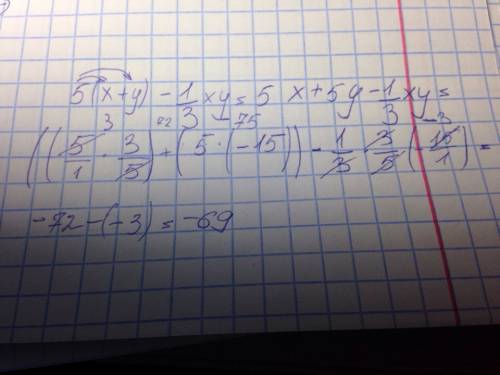 5(x+y) - 1/3 xy = 5x + 5y - 1/3 xy =
3 -75 -3
((5/1 · 3/5) + (5 · (-15))) - 1/3 · 3/5 (-15/1) =
-72 - (-3) = -69